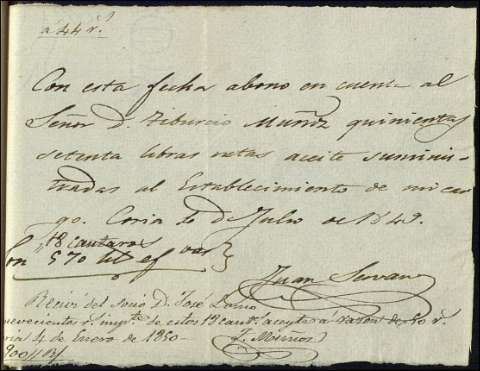 a 44 r.
Con esta fecha abono en cuenta al
Señor D. Tiburcio Muñiz quinientas
setenta libras netas aceite suminis-
tradas al Establecimiento de mi car-
go. Coria de Julio de 1849.
18 cantaros
Son 570 lib
Juan Servan
Recivi del Socio D. José
novecientos r. imp.te de estos 18 cant.s aceyte a razon de 50 r.
Coria 4 de Enero de 1850-
T. Muñoz
900